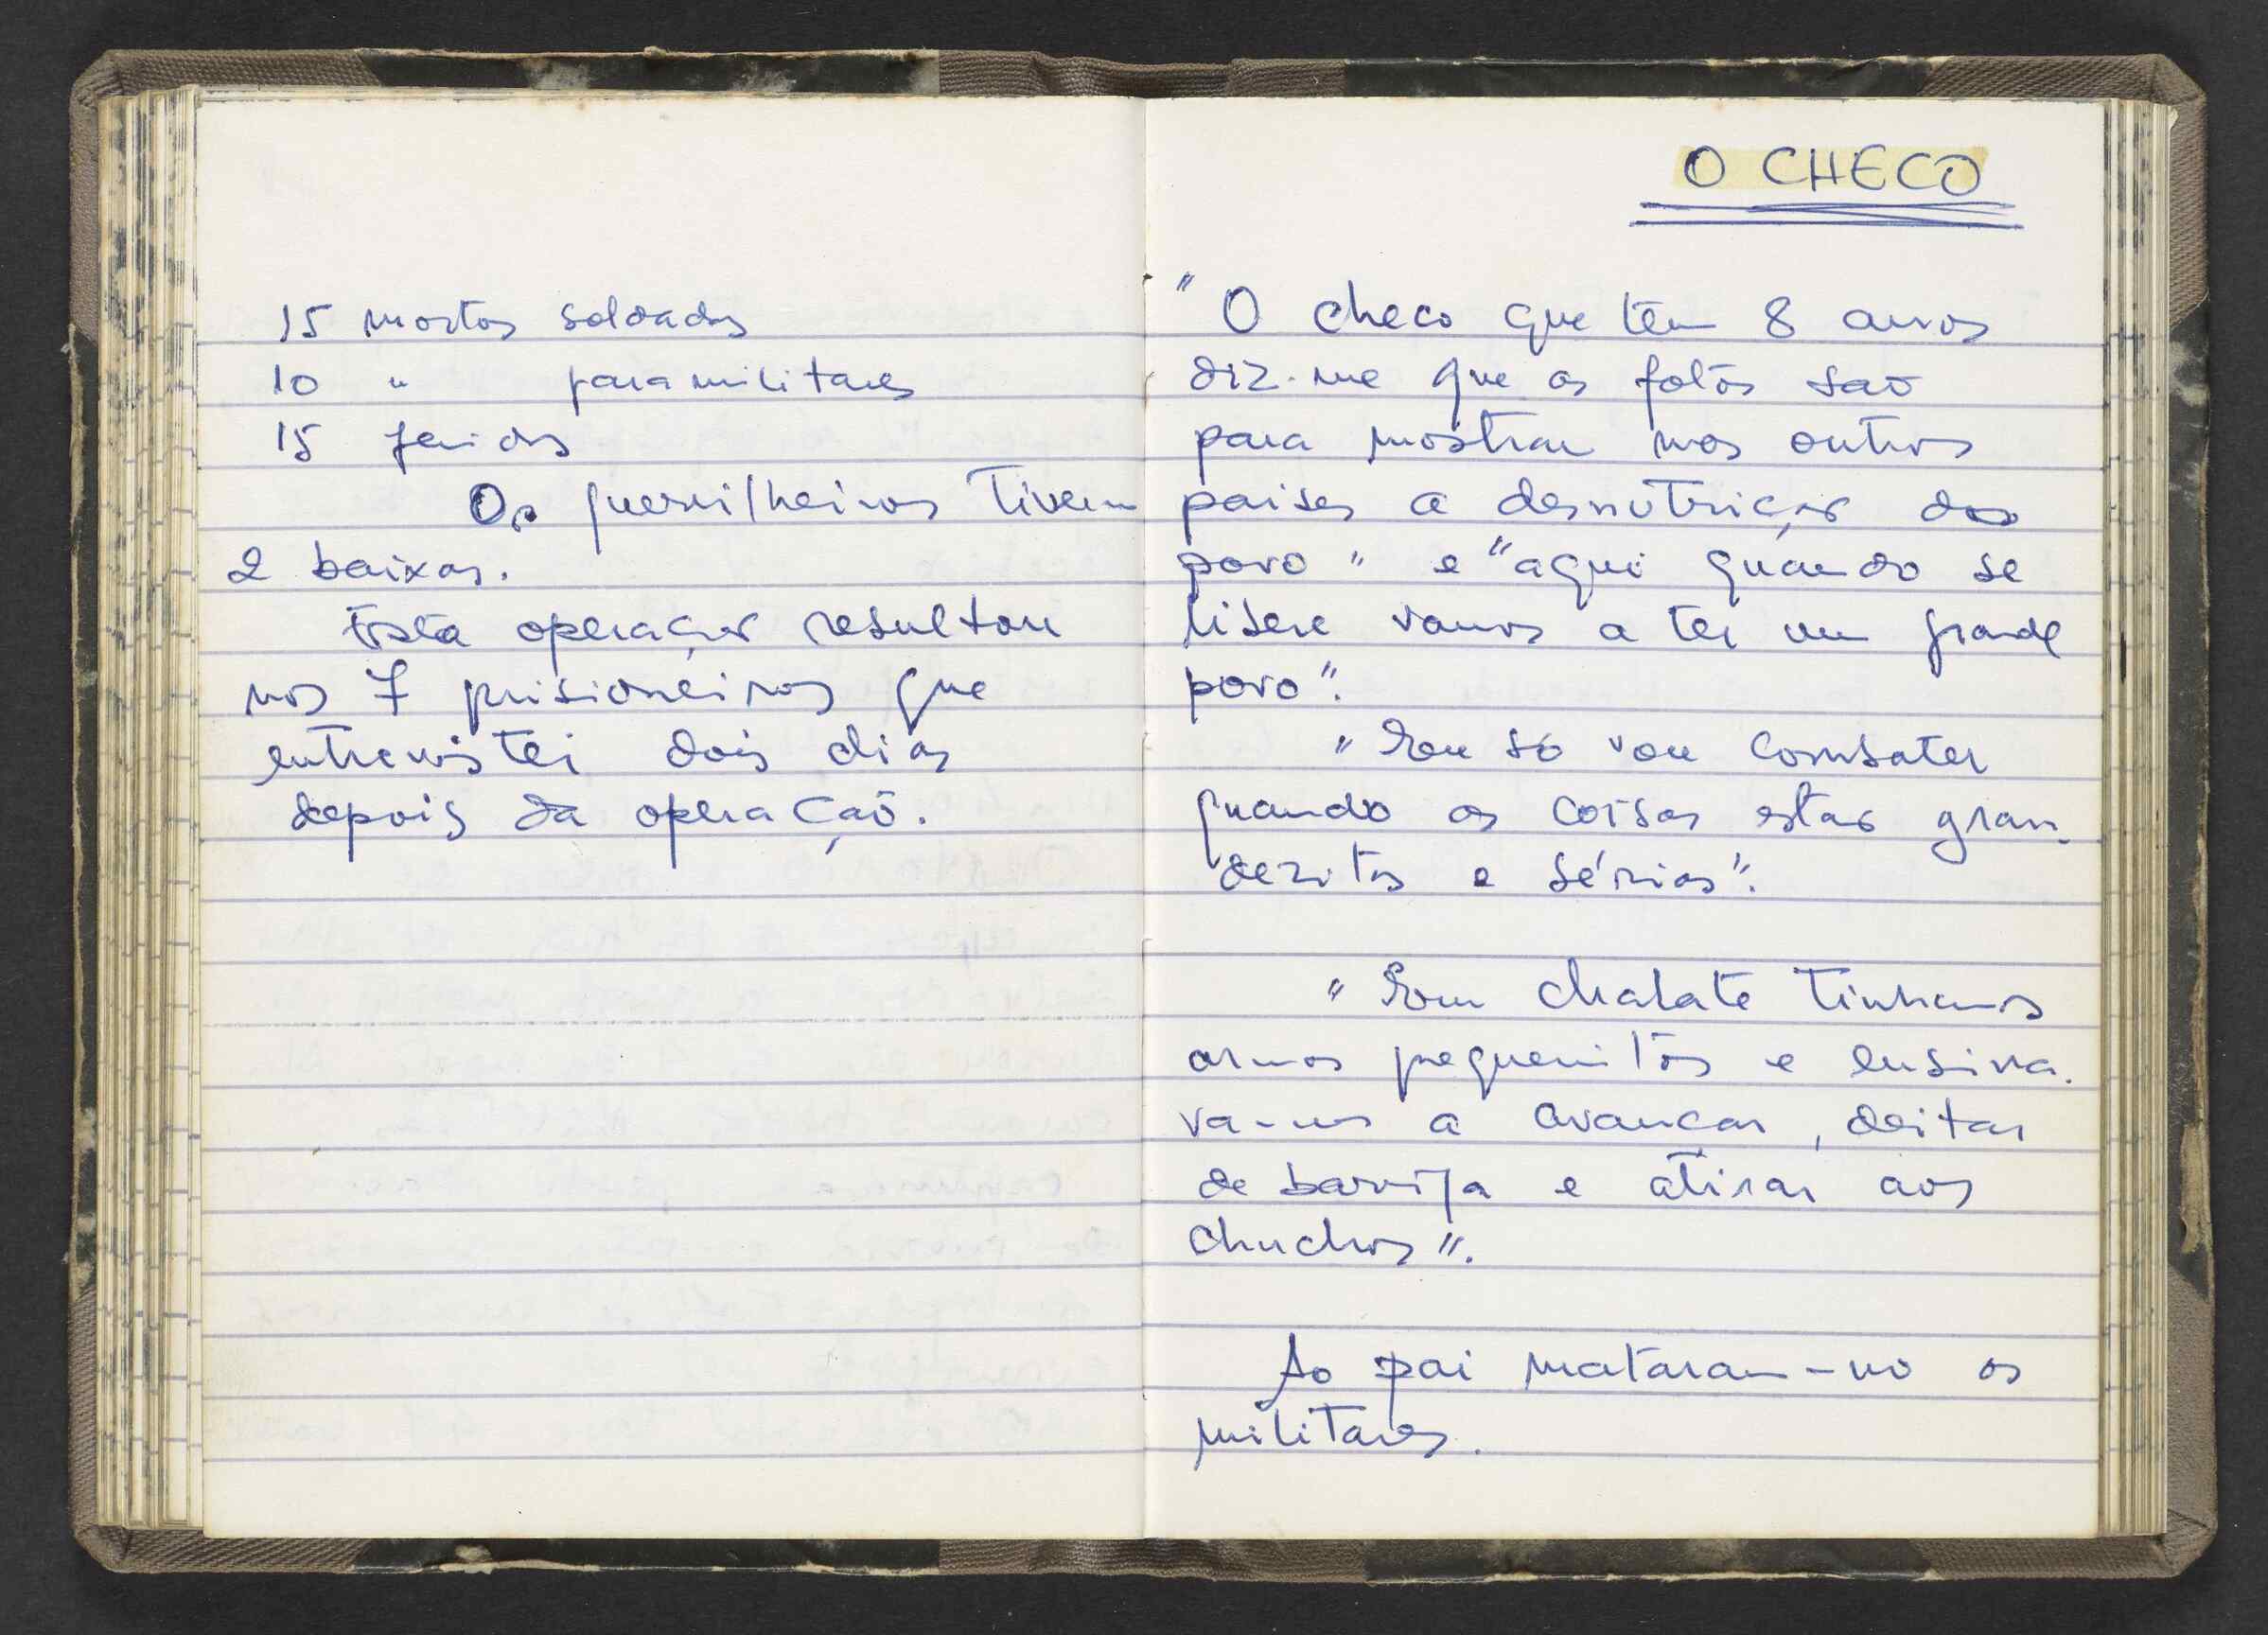 15 mortos soldados
10 " paramilitares
15 feridos
Os guerrilheiros tiveram
2 baixas.
Esta operação resultou
nos 7 prisioneiros que
entrevistei dois dias
depois da operação.
O CHECO
"O checo que tem 8 anos
diz-me que as fotos são
para mostrar nos outros
paises a desnutrição do
povo" e "aqui quando se
libere vamos a ter um grande
povo".
"Eu só vou combater
quando as coisas estão gran-
dezitas e sérias".
"Em Chalate tinhamos
armas pequenitas e ensina-
va-nos a avançar, deitar
de barriga e atirar aos
chuchos".
Ao pai mataram-no os
militares.